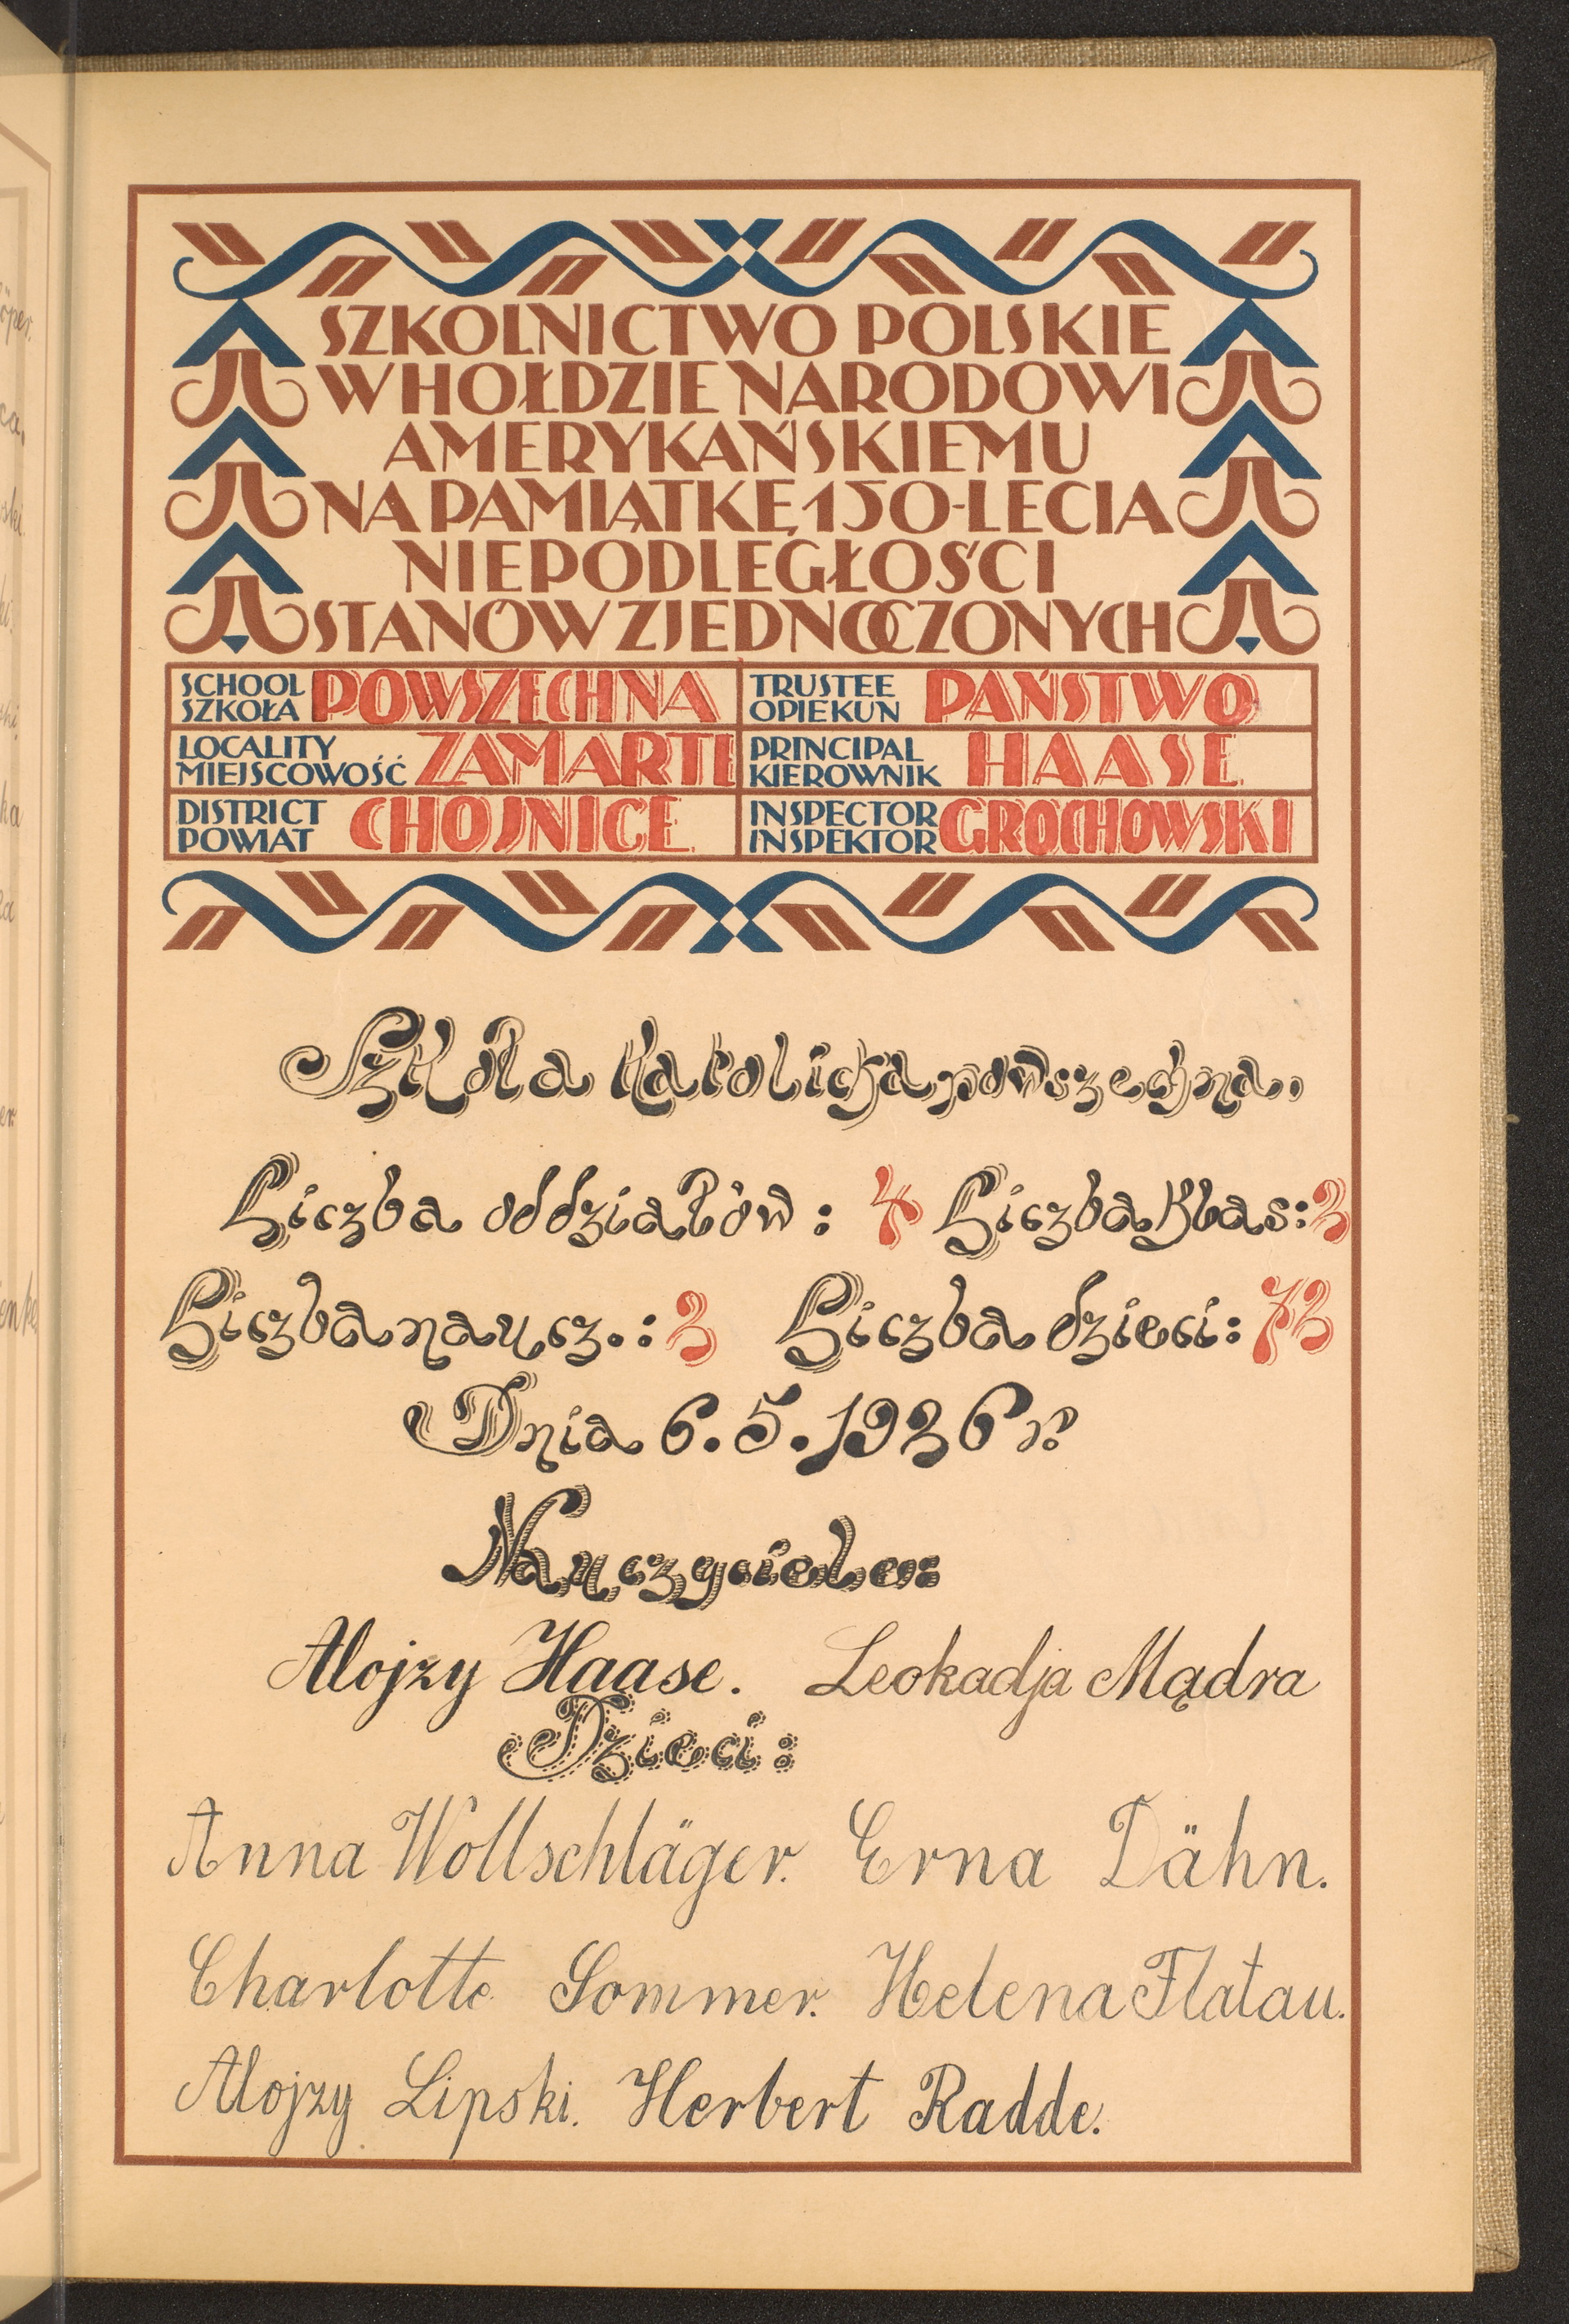 SZKOLNICTWO POLSKIE
W HOŁDZIE NARODOWI
AMERYKAŃSKIEMU
NA PAMIĄTKĘ 150-LECIA
NIEPODLEGŁOŚCI
STANÓW ZJEDNOCZONYCH
SCHOOL SZKOŁA POWSZECHNA TRUSTEE OPIEKUN PAŃSTWO
LOCALITY MIEJSCOWOŚĆ ZAMARTE PRINCIPAL KIEROWNIK HAASE
DISTRICT POWIAT CHOJNICE INSPECTOR INSPEKTOR GROCHOWSKI
Szkoła Katolicka powszechna.
Liczba oddziałów: 4 Liczba klas: 2
Liczba naucz.: 2 Liczba dzieci: 72
Dnia 6. 5. 1926 r.
Nauczyciele:
Alojzy Haase. Leokadja Mądra
Dzieci:
Anna Wollschläger. Erna Dähn.
Charlotte Sommer. Helena Flatau.
Alojzy Lipski. Herbert Radde.